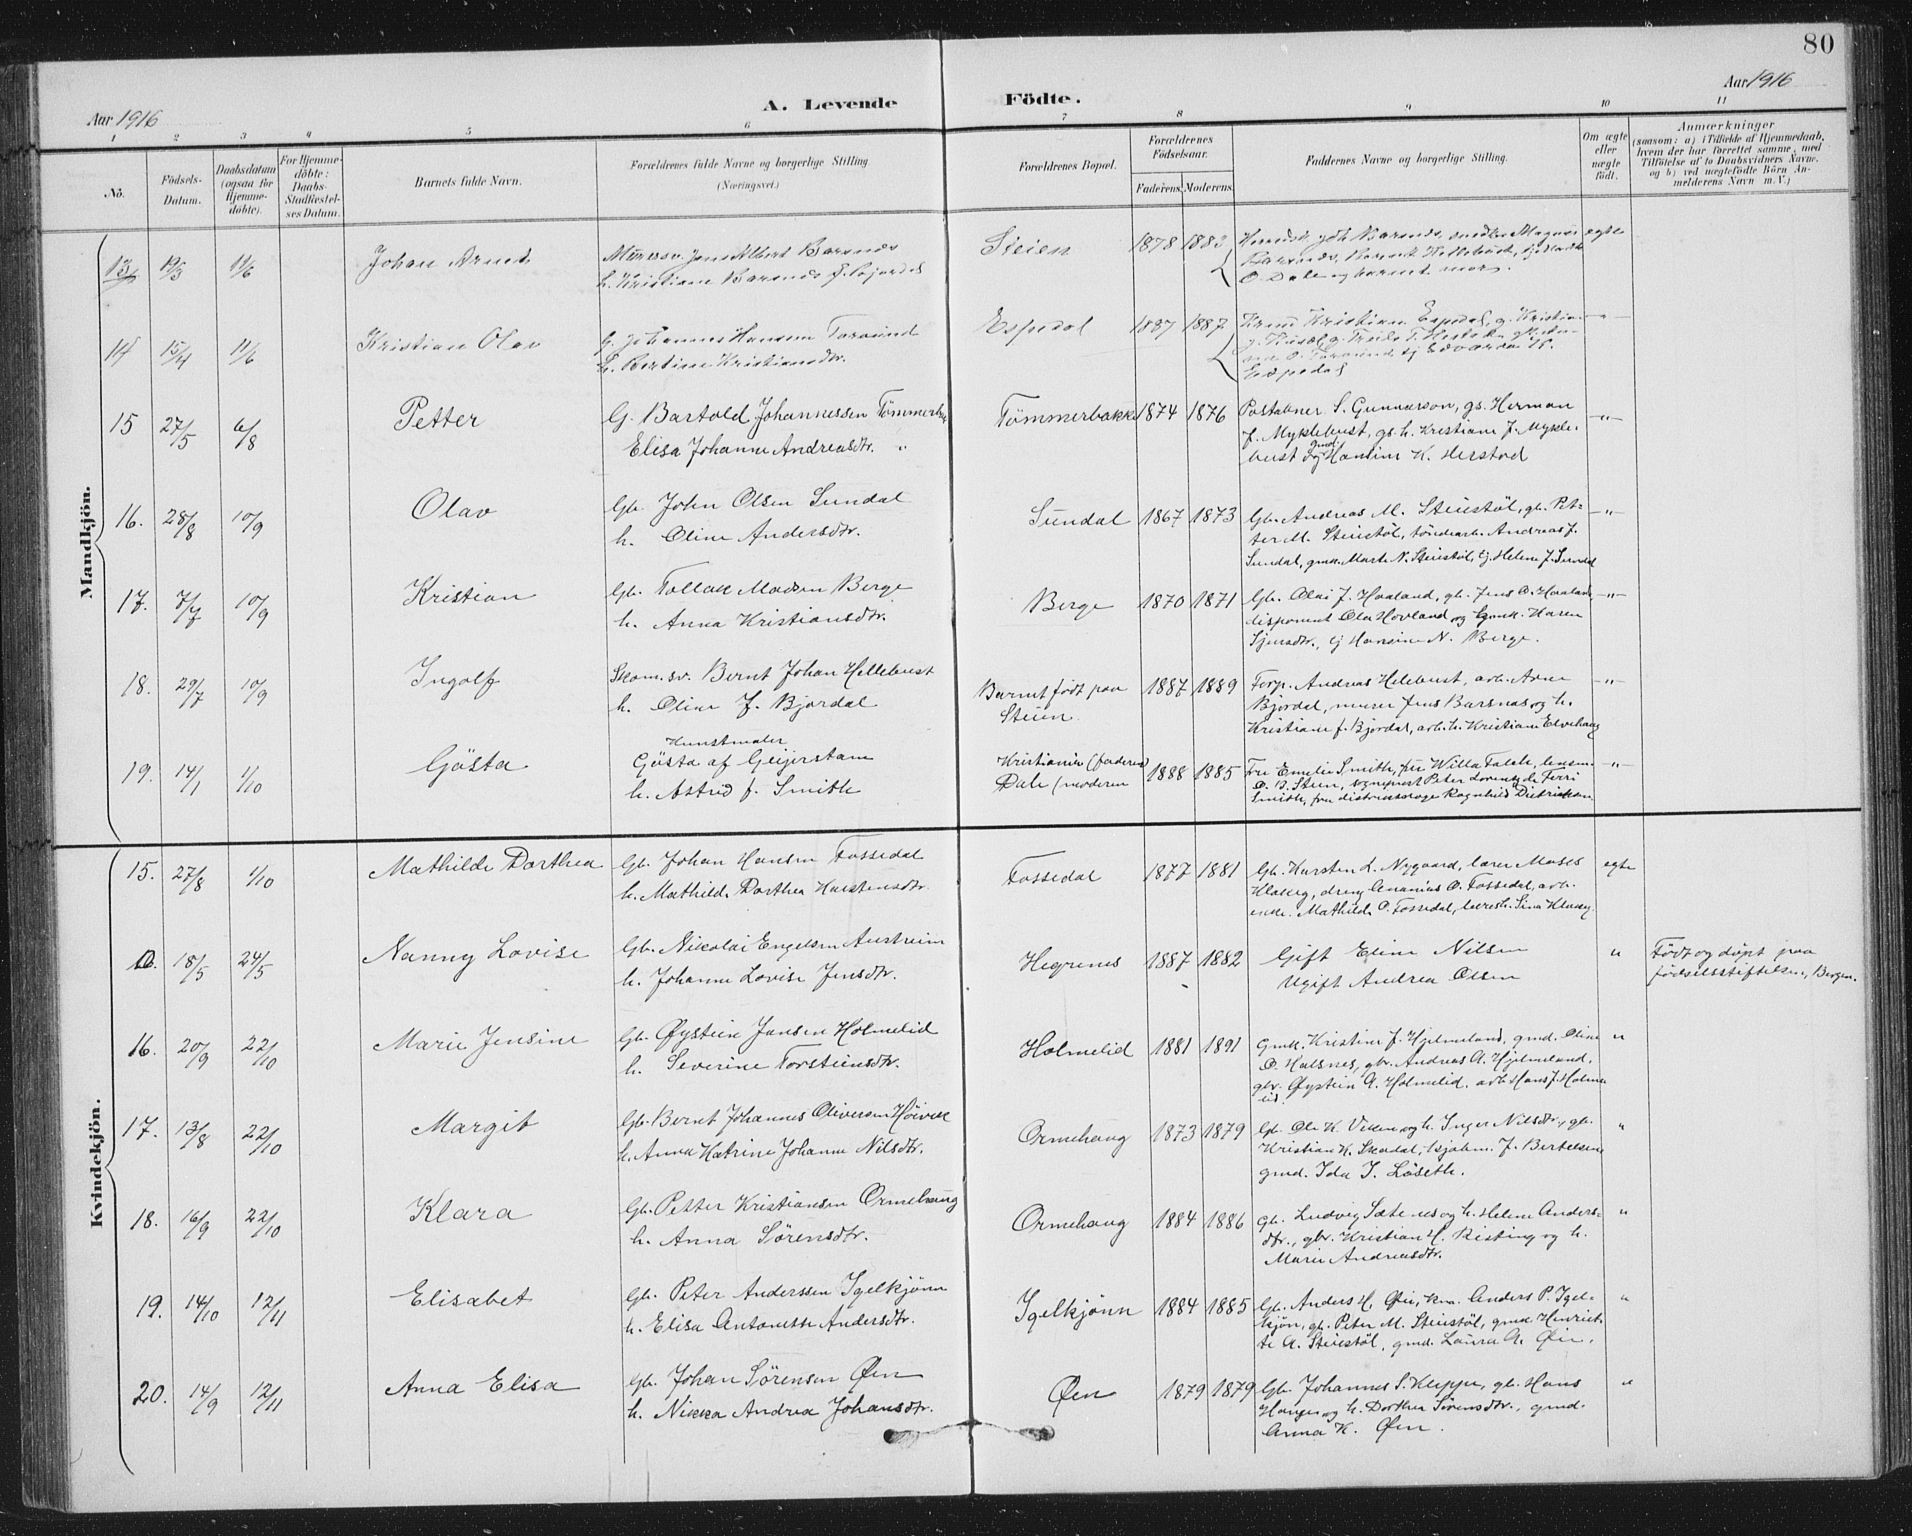 80
Aar 1916
A. Levende
Födte.
Aar 1916
1 2 3 4 5 6 7 8 9 10 11
No.
Födsels-
Datum.
Daabsdatum
(ogsaa for
Hjemme-
döbte).
For Hjemme-
döbte:
Daabs-
Stadfæstel-
ses Datum.
Barnets fulde Navn.
Forældrenes fulde Navne og borgerlige Stilling
(Næringsvei.)
Forældrenes Bopæl.
Forældrenes
Födselsaar.
Faderens. Moderens.
Faddernes Navne og borgerlige Stilling.
Om ægte
eller
uægte
født.
Anmærkninger
(saasom: a) i Tilfælde af Hjemmedaab,
hvem der har forrettet samme, med
Tilföielse af to Daabsvidners Navne.
og b) ved uægtefødte Börn An-
melderens Navn m. V.)
Mandkjön.
13 19/3 11/6 Johan Arnt
Murersv. Jens Albert Barsnes
h. Kristiane Barsnes f. Bjordal
Steien 1878 1883
Barsnes, snedker Magnus
O. Dale og barnets mor.
ægte
14 15/4 11/6 Kristian Olav
G. Johannes Hansen
h. Bertine Kristiansdtr.
Espedal 1887 1887
Kristian Espedal, g. Kristian
Espedal
15 27/5 6/8 Petter
G. Bartold Johannessen Tömmerbak
Elisa Johanne Andreasdtr. "
Tömmerbakke 1874 1876
Postaabner S. Gunnarson, gs. Herman
J. Myklebust, gs. h. Kristiane J. Mykle-
bust og gmd Hansine K. Herstad
-"-
16. 28/8 10/9 Olav
Gb. John Olsen Sundal
h. Oline Andersdtr.
Sundal 1867 1873
Gb. Andreas M. Steinstöl, gb. Pet-
ter M. Steinstöl, töndearb. Andreas J.
Sundal, gmk. Marte N. Steinstöl, ej. Helene J. Sundal
-"-
17. 7/7 10/9 Kristian
Gb. Tollak Madsen Berge
h. Anna Kristiansdtr.
Berge 1870 1871
Gb. Olai J. Haaland, gb. Jens O. Haaland,
disponent Ola Hovland og gmk. Karen
Sjursdtr., ej Hansine N. Berge.
-"-
18. 29/7 10/9 Ingolf
Skom.sv. Bernt Johan Hellebust
h. Oline f. Bjordal
Barnet født paa
Steien
1887 1889
Forp. Andreas Helebust, arb. Arne
Bjordal, murer Jens Barsnes og h.
Kristiane f. Bjordal, arb. h. Kristiane Elvehaug
-"-
19. 14/1 1/10 Gösta
Kunstmaler
Gösta af Geijerstam
h. Astrid f. Smith
Kristiania (faderen)
Dale (moderen
1888 1885
Fru Emelie Smith, frk Willa Falch, lensm.
O. B. Steen, sogneprest Peter Lorentz de Ferri
Smith, fru distriktslæge Ragnhild Dietrichson
-"-
Kvindekjön.
15. 27/8 1/10 Mathilde Dorthea
Gb. Johan Hansen Fossedal
h. Mathilde Dorthea Karstensdtr.
Fossedal 1877 1881
Gb. Karsten L. Nygaard, lærer Moses
Klakeg, dreng Ananias O. Fossedal, arb.
enke Mathilde O. Fossedal, lærerh. Sina Klakeg.
egte
18/5 24/5 Nanny Lovise
Gb. Nikolai Engelsen Austreim
h. Johanne Lovise Jensdtr.
Hegrenes 1887 1882
Gift Eline Nilsen
Ugift Andrea Olsen
"
Född og döpt paa
födselsstiftelsen, Bergen.
16. 20/9 22/10 Marie Jensine
Gb. Øystein Jansen Holmelid
h. Severine Torsteinsdtr.
Holmelid 1881 1891
Gmk. Kristine J. Hjelmeland, gmd. Oline
O. Halsnes, gbr. Andreas A. Hjelmeland,
gbr. Øystein A. Holmelid, arb. Hans J. Holme-
lid.
"
17. 13/8 22/10 Margit
Gb. Bernt Johannes Oliversen Høivik
h. Anna Katrine Johanne Nilsdtr.
Ormehaug 1873 1879
Gb. Ole K. Viken og h. Inger Nilsdtr., gb.
Kristian K. Skadal, skjøhm. J. Bertelsen
gmd. Ida I. Löseth.
"
18. 16/9 22/10 Klara
Gb. Petter Kristiansen Ormehaug
h. Anna Sörensdtr.
Ormehaug 1884 1886
Gb. Ludvig Sætenes og h. Helene Anders-
dtr., gbr. Kristian H. Risting og h.
Marie Andreasdtr.
"
19. 14/10 12/11 Elisabet
Gb. Peter Anderssen Igelkjönn
h. Elisa Antonette Andersdtr.
Igelkjönn 1884 1885
Gb. Anders H. Øen, kna. Anders P. Igel-
kjön, gb. Peter M. Steinstöl, gmk. Henriet-
te A. Steinstöl, gmd. Laura A. Øen.
"
20. 14/9 12/11 Anna Elisa
Gb. Johan Sörensen Øen
h. Nikka Andrea Johansdtr.
Øen 1879 1879
Gb. Johannes S. Kleppe, gb. Hans
Hauge og h. Dorthea Sörensdtr., gmd.
Anna K. Øen.
"